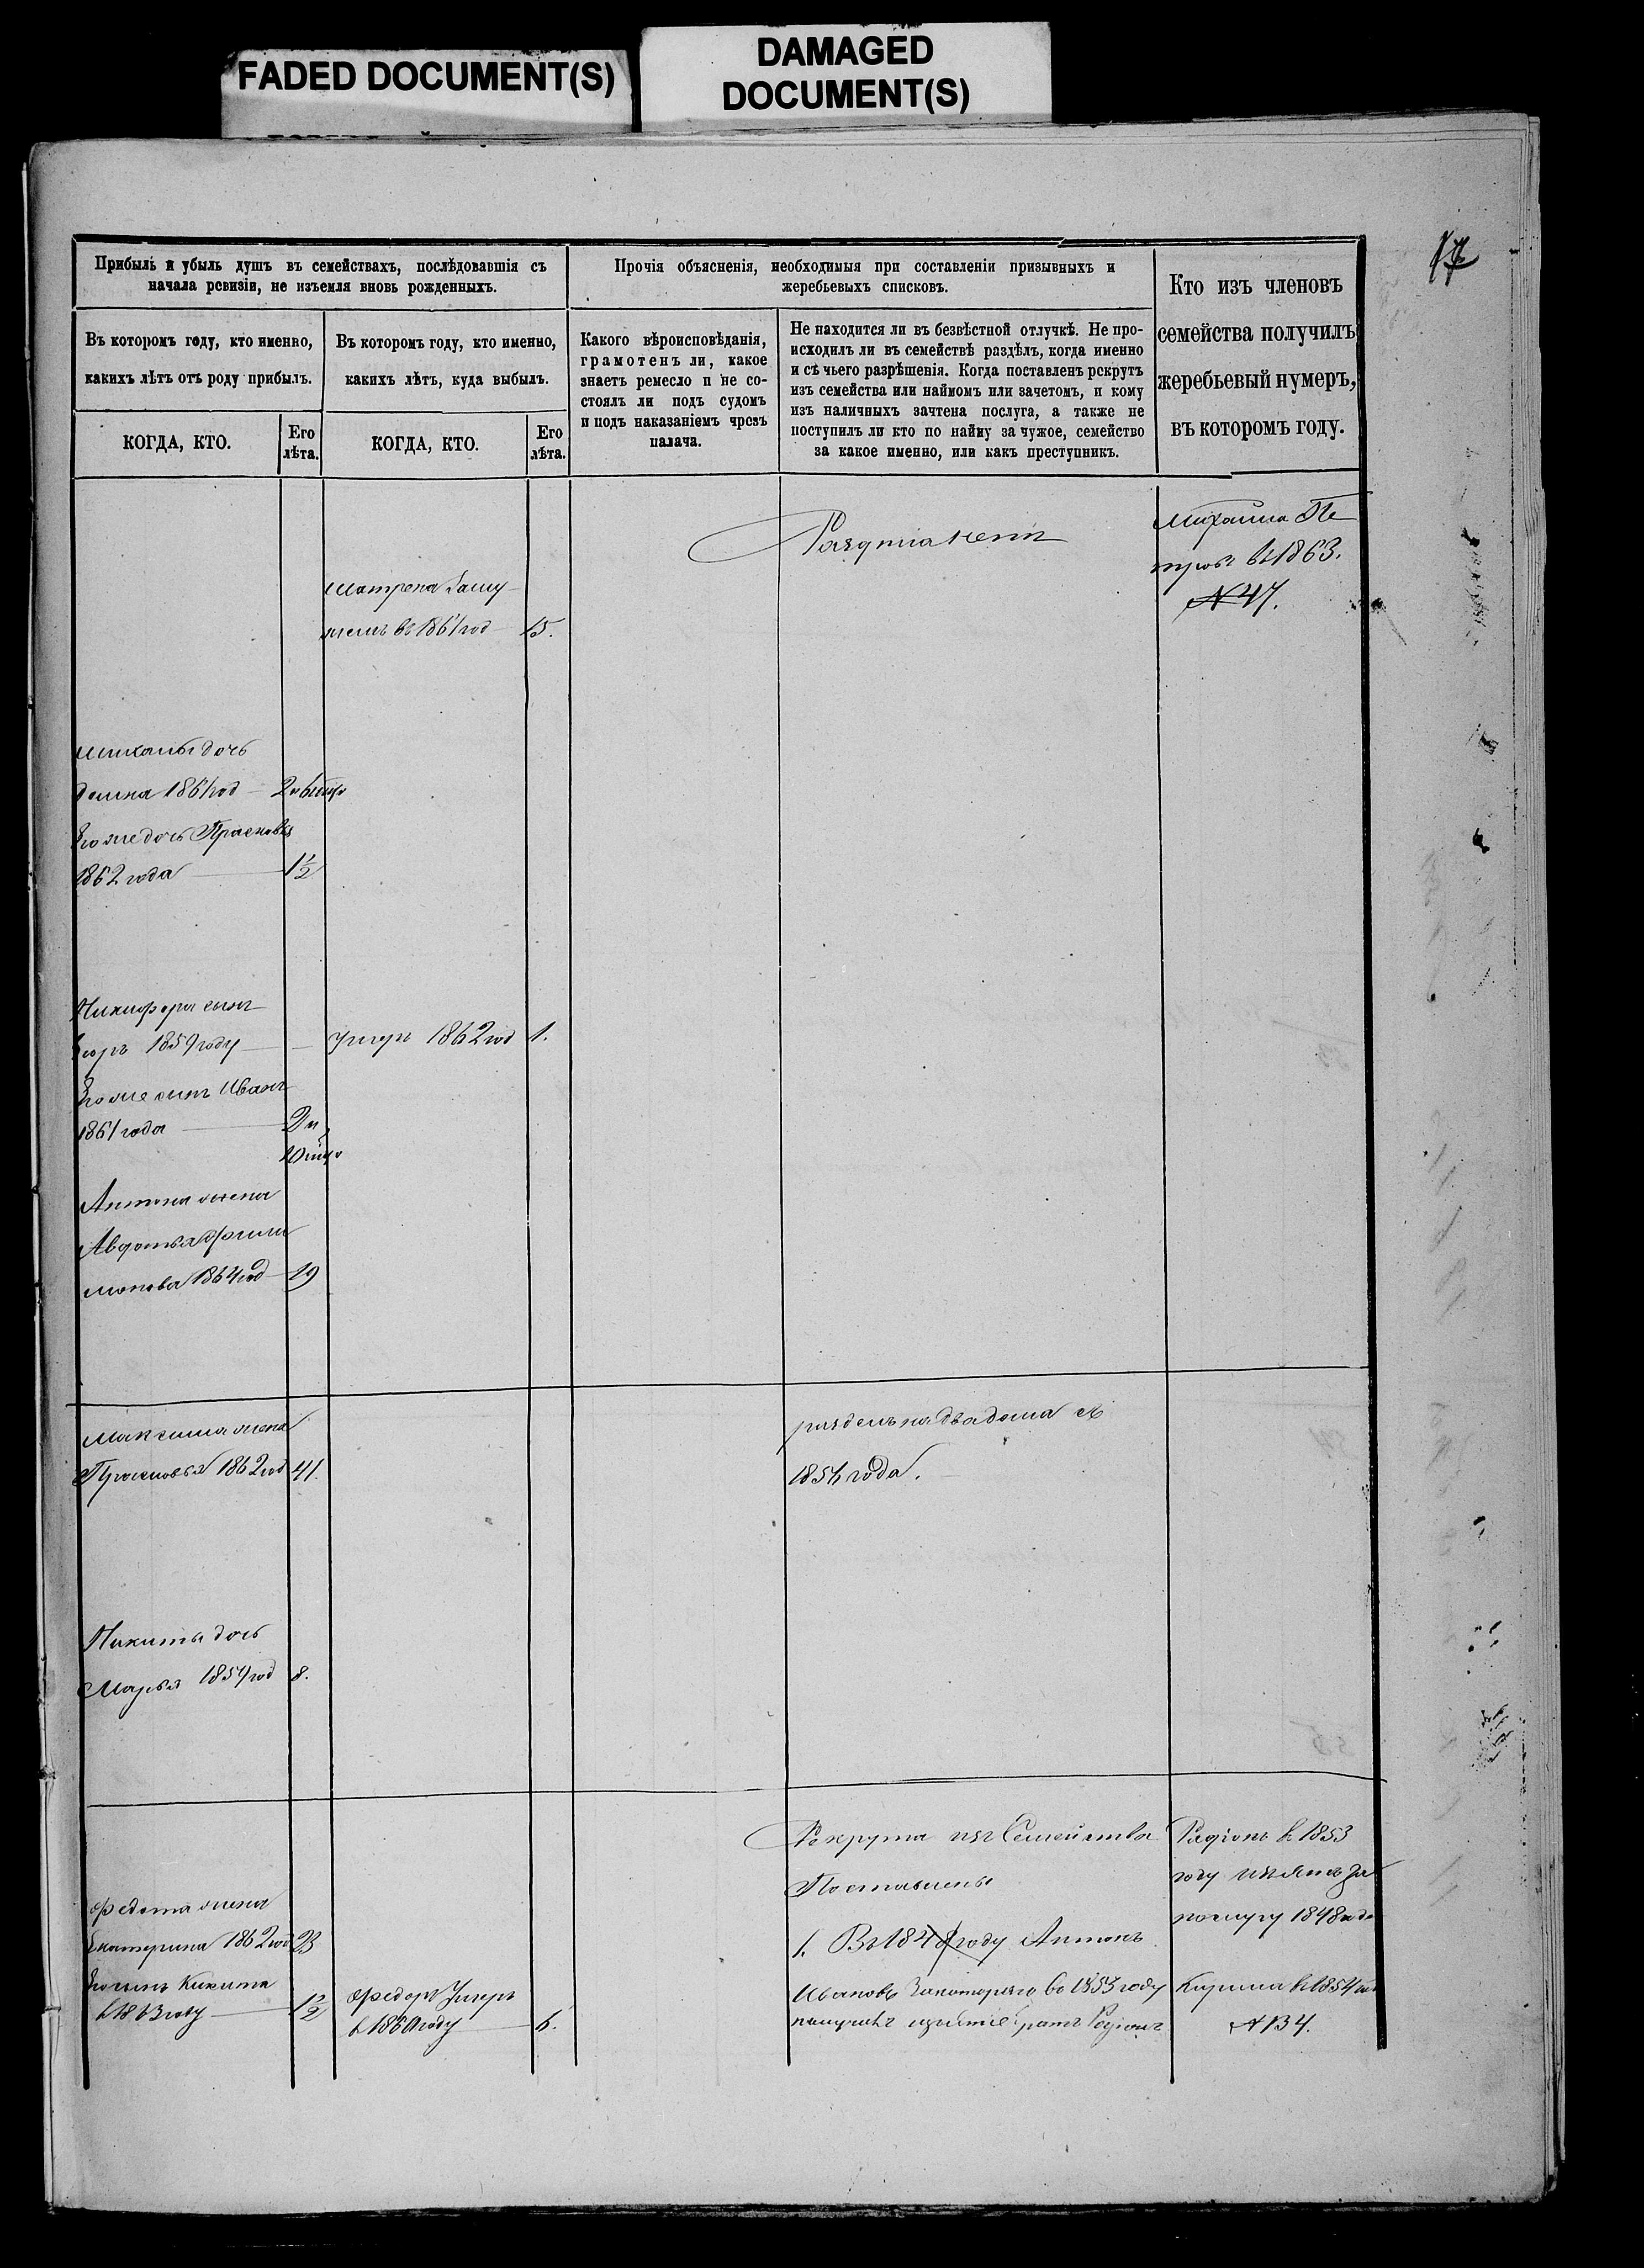 FADED DOCUMENT(S)
DAMAGED
DOCUMENT(S)
17
Прибыль и убыль душъ въ семействахъ, послѣдовавшія съ
начала ревизіи, не изъемля вновь рожденныхъ.
Въ которомъ году, кто именно,
какихъ лѣтъ отъ роду прибылъ.
КОГДА, КТО.
Его
лѣта.
Въ которомъ году, кто именно,
какихъ лѣтъ, куда выбылъ.
КОГДА, КТО.
Его
лѣта.
Прочія объясненія, необходимыя при составленіи призывныхъ и
жеребьевыхъ списковъ.
Какого вѣроисповѣданія,
грамотенъ ли, какое
знаетъ ремесло и не со-
стоялъ ли подъ судомъ
и подъ наказаніемъ чрезъ
палача.
Не находится ли въ безвѣстной отлучкѣ. Не про-
исходилъ ли въ семействѣ раздѣлъ, когда именно
и съ чьего разрѣшенія. Когда поставленъ рекрутъ
изъ семейства или наймомъ или зачетомъ, и кому
изъ наличныхъ зачтена послуга, а также не
поступилъ ли кто по найму за чужое, семейство
за какое именно, или какъ преступникъ.
Кто изъ членовъ
семейства получилъ
жеребьевый нумеръ,
въ которомъ году.
Михаила Пе
тровъ въ 1863.
№ 47.
Матрена Заму
жемъ въ 1861 год 15.
дочь
1861 год 2 и 6
Его же дочь Прасковья
1862 года 1½
Никифора сынъ
Егоръ 1859 году
умеръ 1862 год 1.
Его же сынъ Иванъ
1861 года 2 и
10
Антона жена
Авдотья Фили
монова 1864 год 19
Максима жена
Прасковья 1862 год 41.
раздель на два дома съ
1854 года.
Никиты дочь
Марья 1854 год 8.
Рекрута изъ Семейства
Поставлены
1. Въ 1848 году Антонъ
Ивановъ За котораго во 1853 году
получилъ изъятие братъ Редионъ
Радіонъ в 1853
году изъятъ за
послугу 1848 года
Кирила в 1854 год
№ 134.
Федота жена
Екатерина 1862 год 23
Его сынъ Никита
в 1863 году 1½
Федоръ Умеръ
в 1860 году 6.